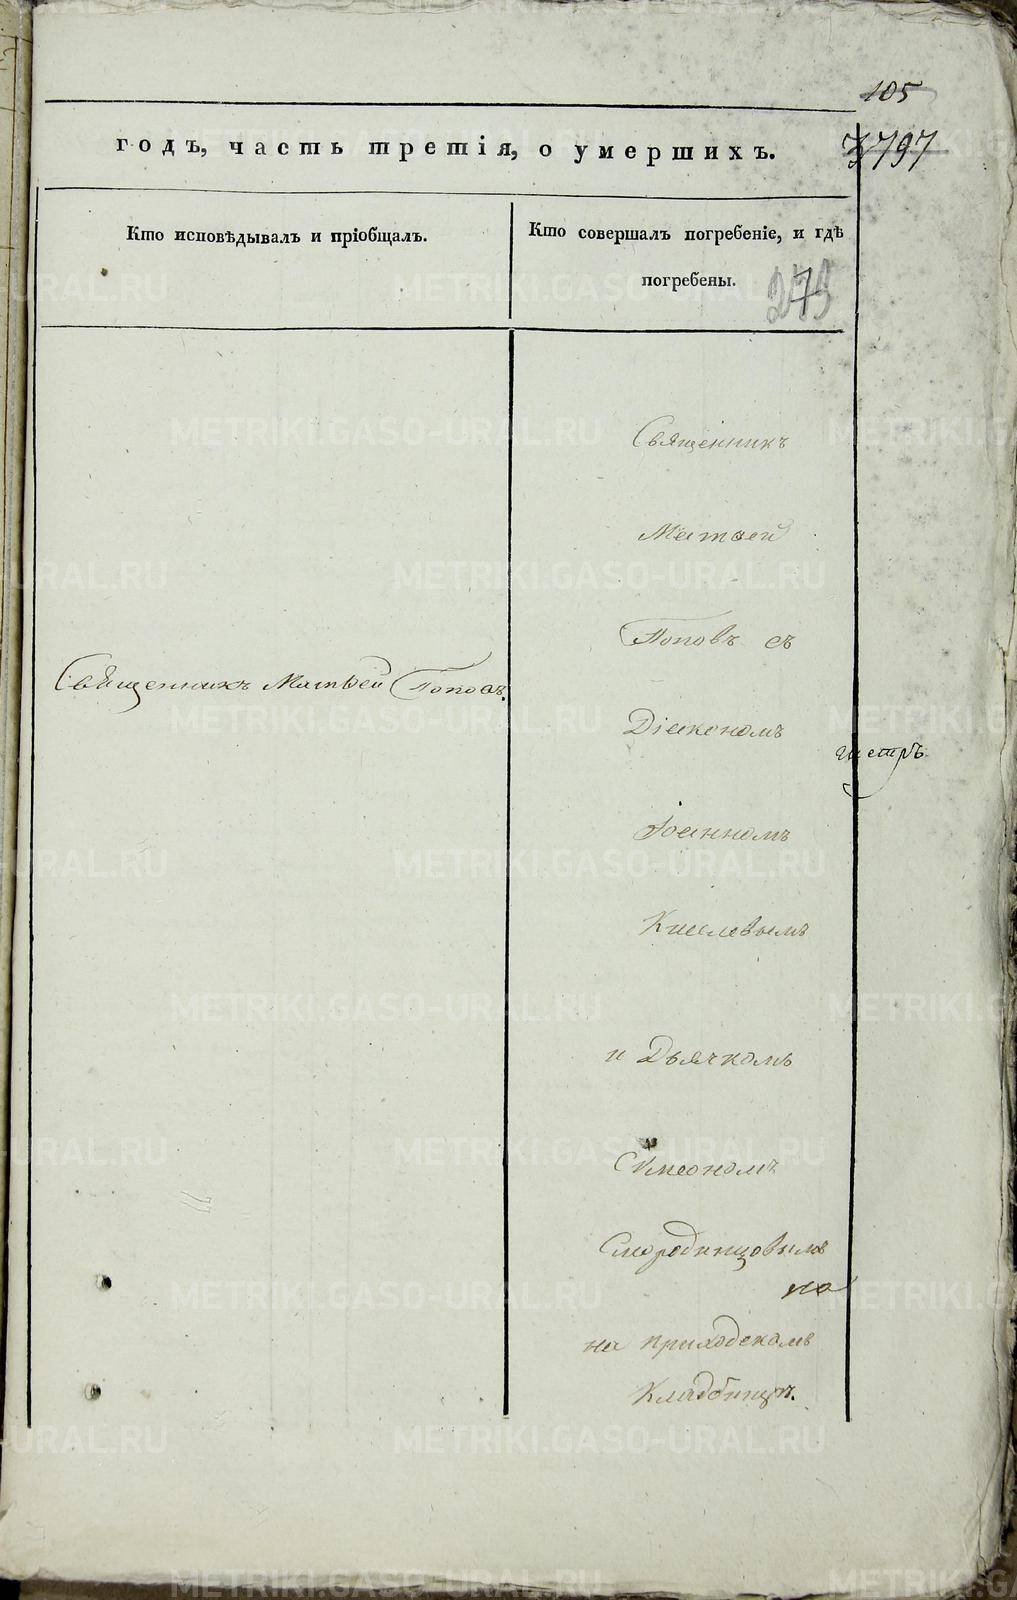 105
годъ, часть третія, о умершихъ.
797
Кто исповѣдывалъ и пріобщалъ.
Кто совершалъ погребеніе, и гдѣ
погребены.
273
Священникъ
Матвей
Поповъ съ
Священникъ Матвей Поповъ.
Діакономъ
Іоанномъ
Киселевымъ
и Дьячкомъ
Симеономъ
Смородинцовымъ
на
на приходскомъ
Кладбищѣ.
METRIKI.GASO-URAL.RU